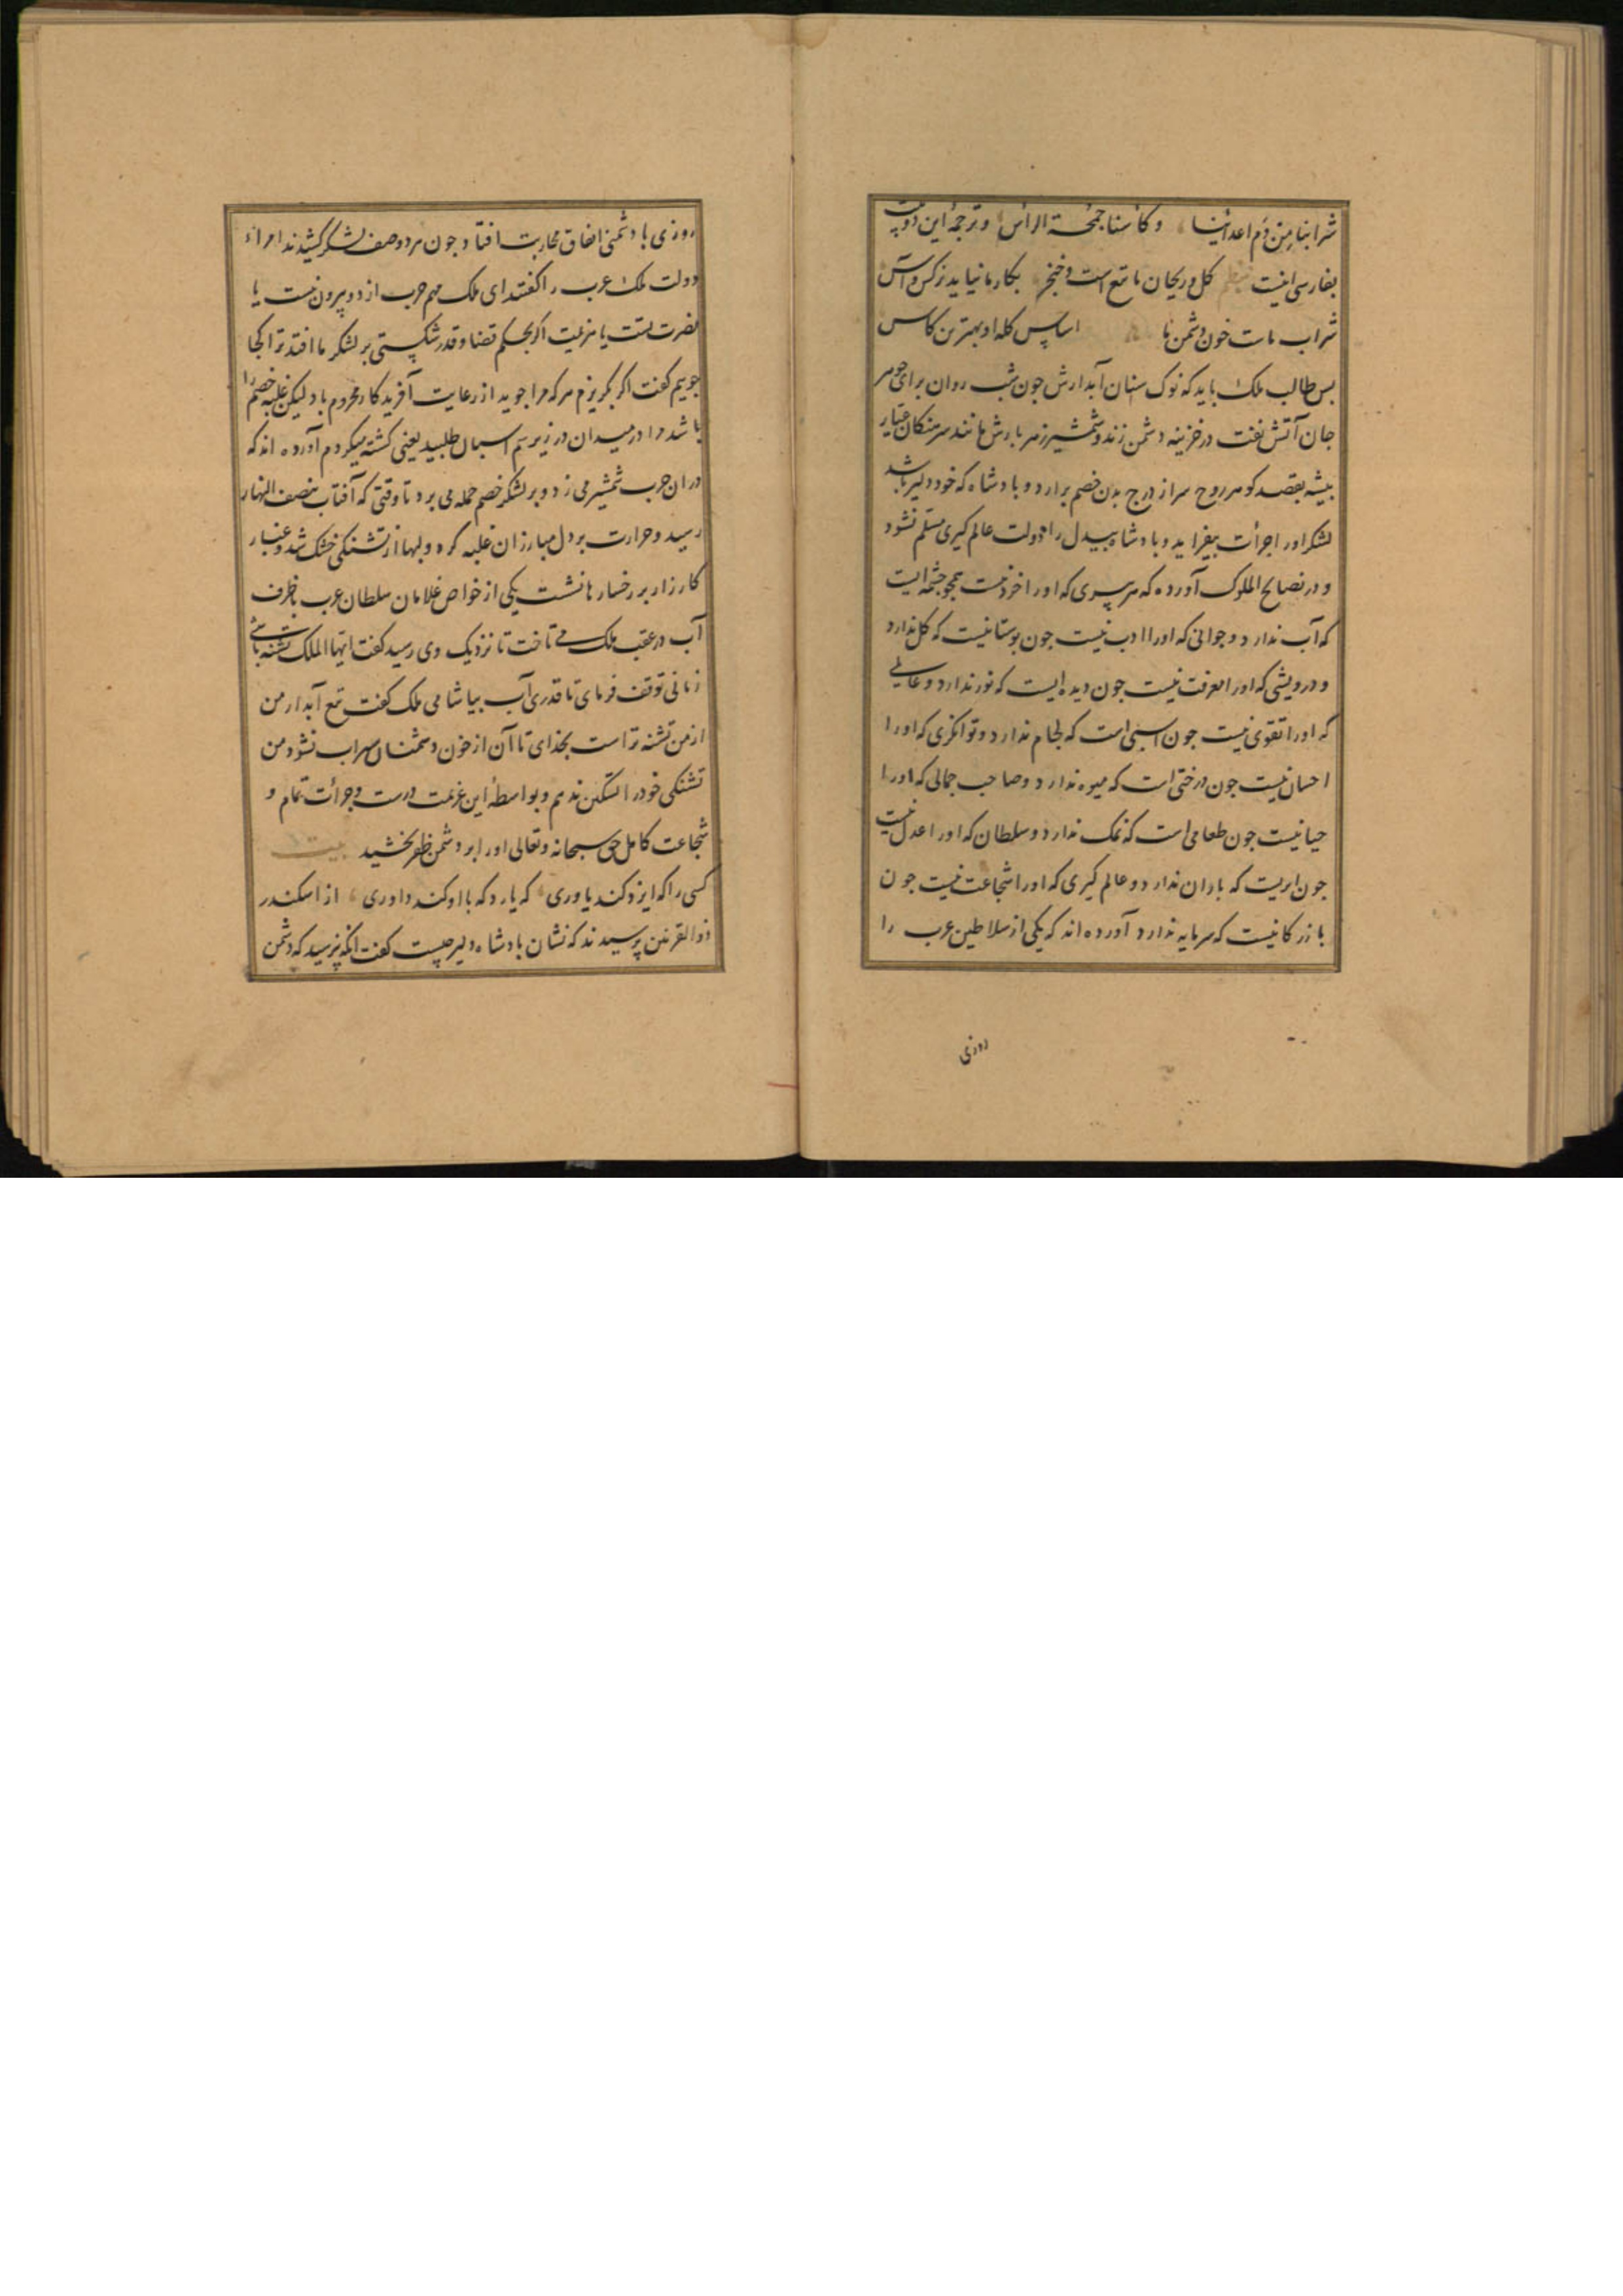 شرابنا مِن دَم اعدائنا وکأسنا جمجمة الرأس وترجمهٔ این دو بیت
بفارسی اینست نظم کل وریحان ما تیغ است وخنجر بکار ما نیاید نرکس وآس
شراب ماست خون دشمن ما اساس کله او بهترین کاس
بس طالب ملک باید که نوک سنان آبدارش جون شب روان برای جوهر
جان آتش نفت در خزینه دشمن زند وشمشیر زهر بارش مانند سرهنکان عیار
بیشه بقصد کوهر روح سر از درج بدن خصم بردارد و بادشاه که خود دلیر باشد
لشکر اورا جرأت بیفزاید و بادشاه بیدل را دولت عالم کیری مسلم نشود
و در نصایح الملوک آورده که هر پیری که اورا خرد نیست همجو جشمه ایست
که آب ندارد و جوانی که اورا ادب نیست جون بوستانیست که کل ندارد
و درویشی که اورا معرفت نیست جون دیده ایست که نور ندارد و عالمی
که اورا تقوی نیست جون اسبی است که لجام ندارد و توانکری که اورا
احسان نیست جون درختی است که میوه ندارد و صاحب جمالی که اورا
حیا نیست جون طعامی است که نمک ندارد و سلطان که اورا عدل نیست
جون ابریست که باران ندارد و عالم کیری که اورا شجاعت نیست جون
بازرکانیست که سرمایه ندارد آورده اند که یکی از سلاطین عرب را
روزی
روزی با دشمنی اتفاق محاربت افتاد جون هر دو صف لشکر کشیدند امراء
دولت ملک عرب را کفتند ای ملک مهم حرب از دو بیرون نیست یا
نصرتست یا هزیمت اکر بحکم قضا وقدر شکستی بر لشکر ما افتد ترا کجا
جوییم کفت اکر بکریزم هر که مرا جوید از رعایت آفریدکار محروم باد لیکن غلبه خصم را
باشد مرا در میدان در زیر سم اسبان طلبید یعنی کشته میکردم آورده اند که
در ان حرب شمشیر می زد و بر لشکر خصم حمله می برد تا وقتی که آفتاب بنصف النهار
رسید و حرارت بر دل مبارزان غلبه کرد و لبها از تشنکی خشک شد و غبار
کارزار بر رخسارها نشست یکی از خواص غلامان سلطان عرب با ظرف
آب در عقب ملک می تاخت تا نزدیک وی رسید کفت ایها الملک تشنه باشی
زمانی توقف فرمای تا قدری آب بیاشامی ملک کفت تیغ آبدار من
از من تشنه تر است بخدای تا آن از خون دشمنان سیراب نشود من
تشنکی خود را تسکین ندهم و بواسطهٔ این عزیمت درست و جرأت تمام و
شجاعت کامل حق سبحانه وتعالی اورا بر دشمن ظفر بخشید بیت
کسی را که ایزد کند یاوری که یارد که با او کند داوری از اسکندر
ذو القرنین پرسیدند که نشان بادشاه دلیر چیست کفت انکه نپرسید که دشمن